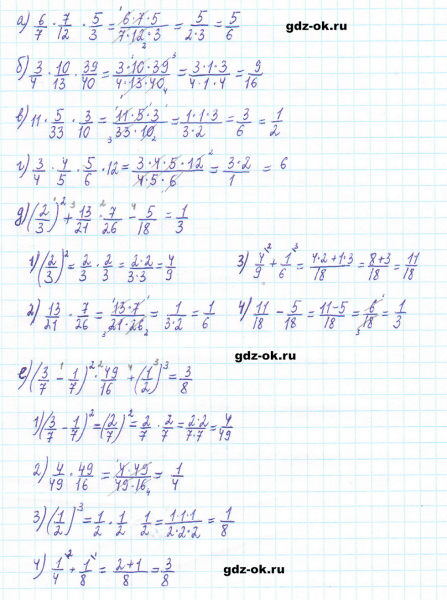 gdz-ok.ru
а) 6/7 · 7/12 · 5/3 = 6·7·5/7·12·3 = 5/2·3 = 5/6
б) 3/4 · 10/13 · 39/40 = 3·10·39/4·13·40 = 3·1·3/4·1·4 = 9/16
в) 11 · 5/33 · 3/10 = 11·5·3/33·10 = 1·1·3/3·2 = 3/6 = 1/2
г) 3/4 · 4/5 · 5/6 · 12 = 3·4·5·12/4·5·6 = 3·2/1 = 6
д) (2/3)² + 13/21 · 7/26 - 5/18 = 1/3
1) (2/3)² = 2/3 · 2/3 = 2·2/3·3 = 4/9
3) 4/9 + 1/6 = 4·2+1·3/18 = 8+3/18 = 11/18
2) 13/21 · 7/26 = 13·7/21·26 = 1/3·2 = 1/6
4) 11/18 - 5/18 = 11-5/18 = 6/18 = 1/3
gdz-ok.ru
е) (3/7 - 1/7)² · 49/16 + (1/2)³ = 3/8
1) (3/7 - 1/7)² = (2/7)² = 2/7 · 2/7 = 2·2/7·7 = 4/49
2) 4/49 · 49/16 = 4·49/49·16 = 1/4
3) (1/2)³ = 1/2 · 1/2 1/2 = 1·1·1/2·2·2 = 1/8
4) 1/4 + 1/8 = 2+1/8 = 3/8
gdz-ok.ru